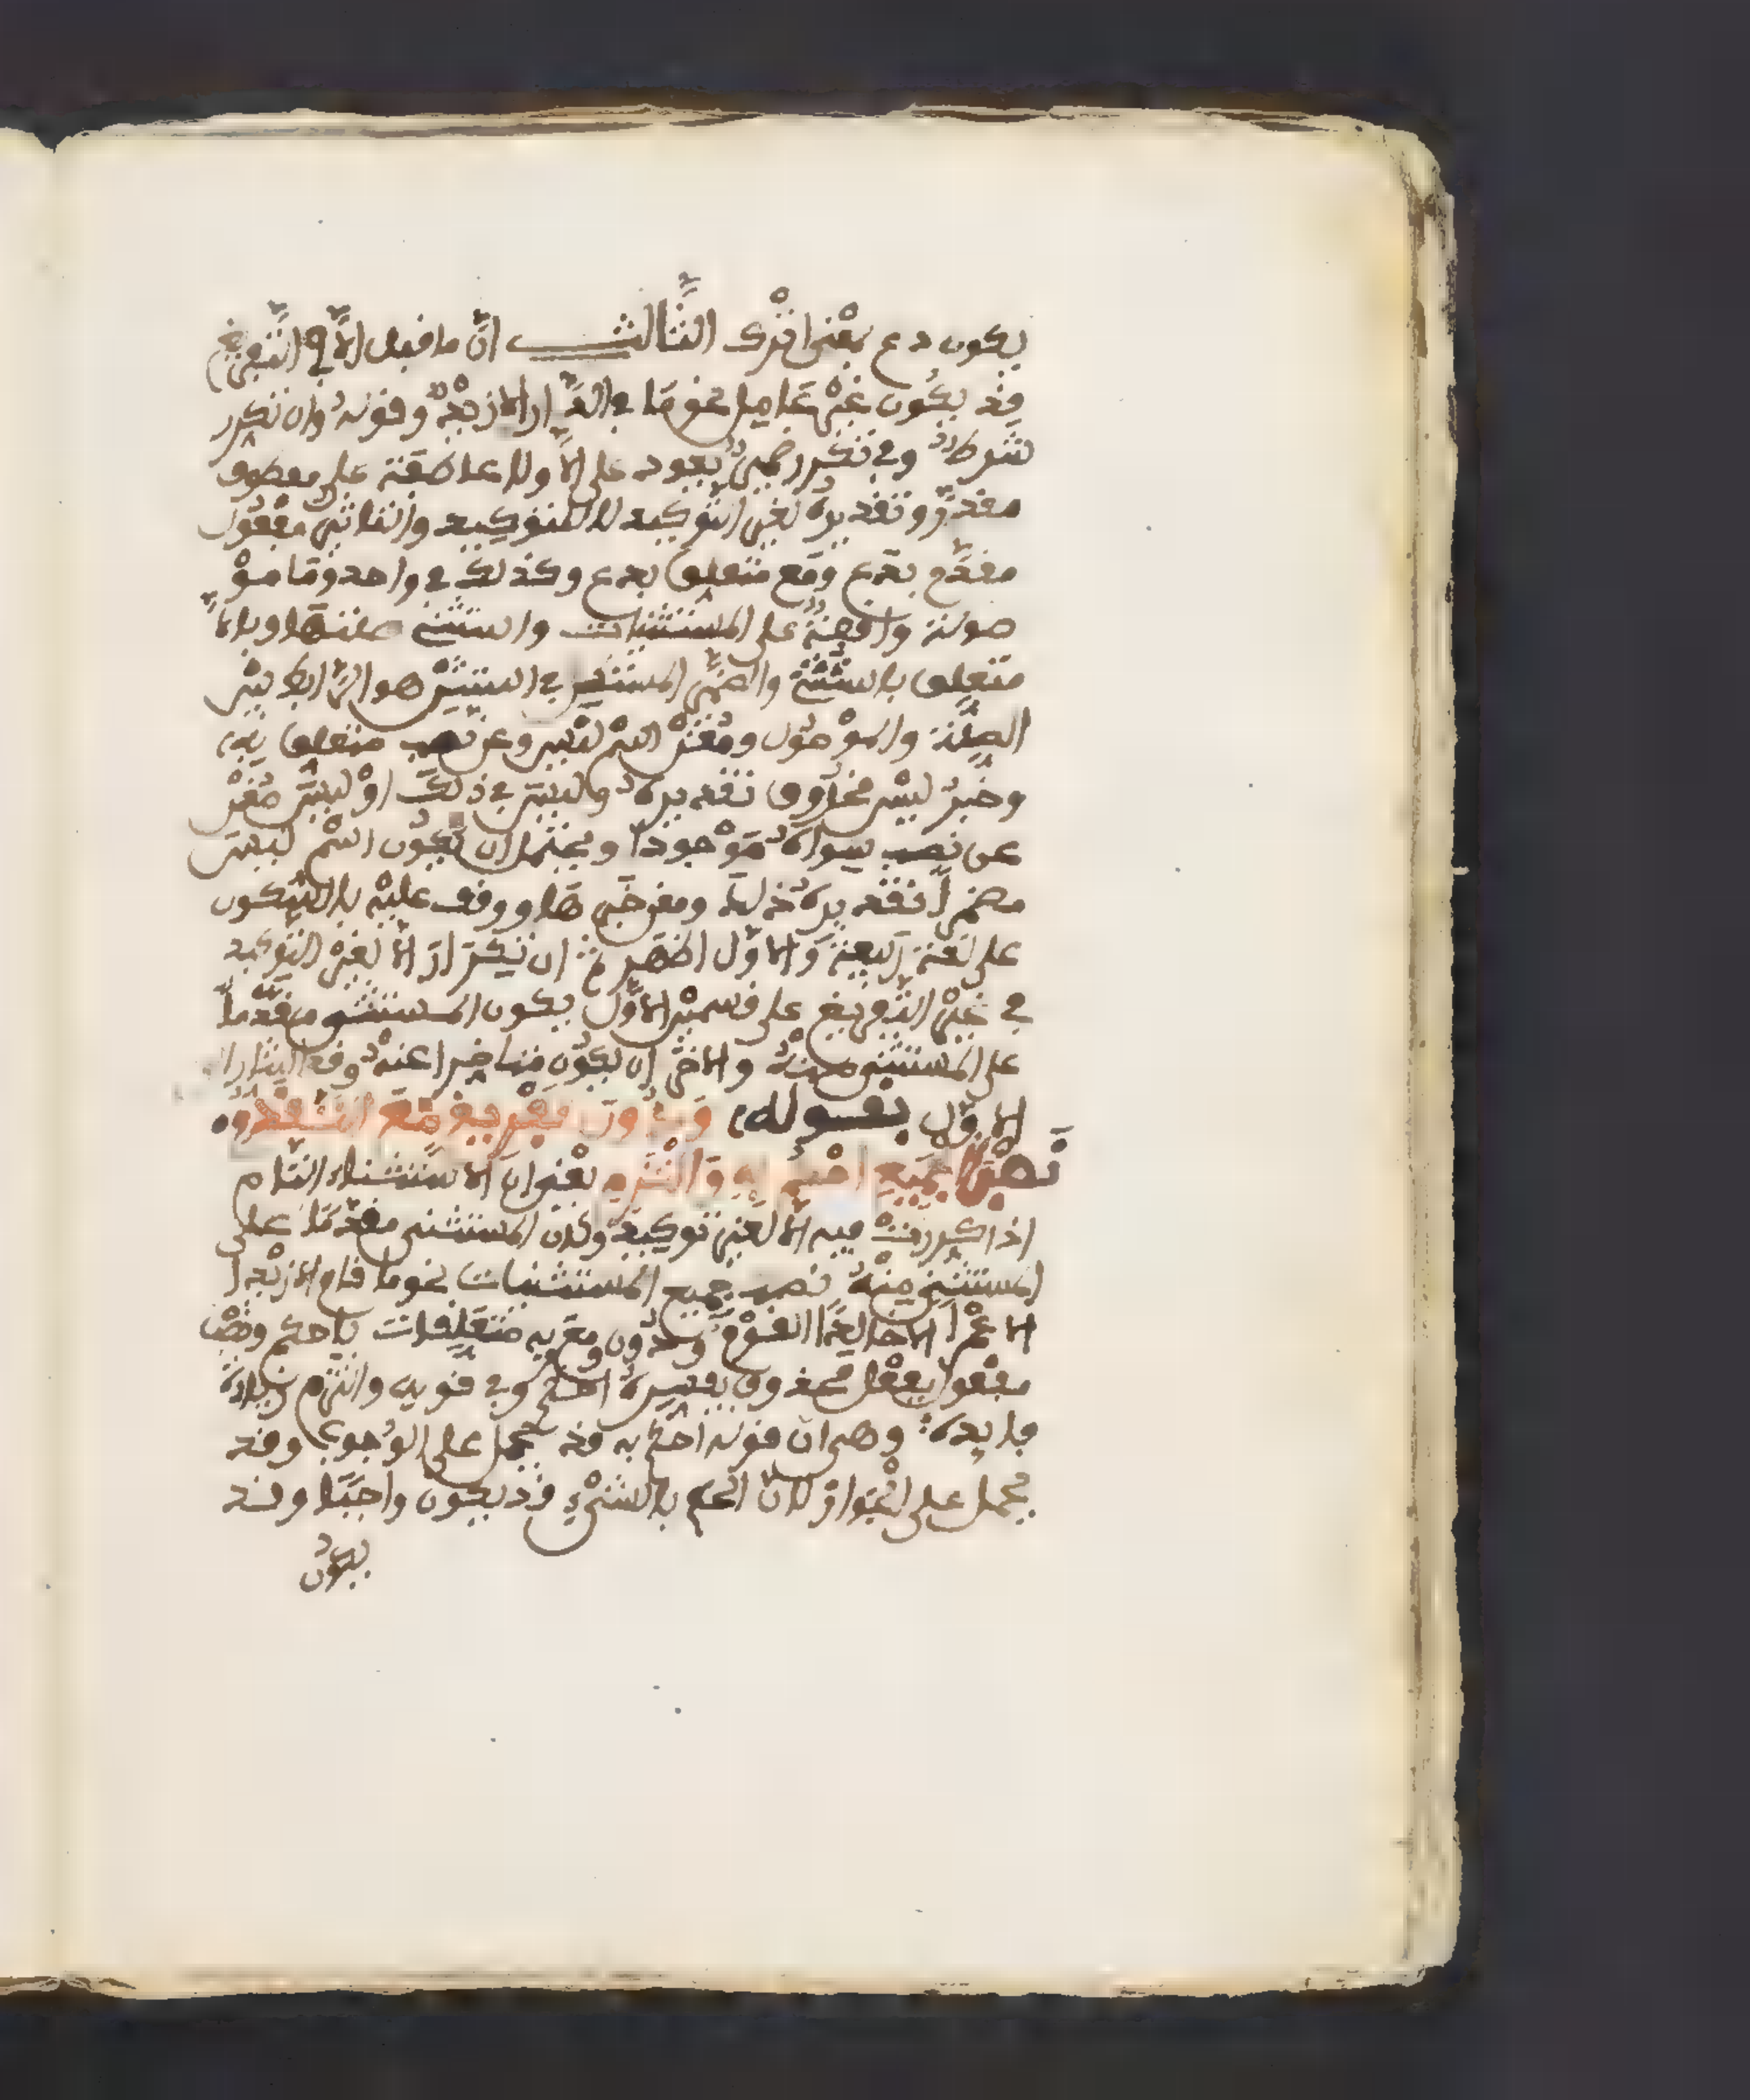 يكون دع بمعنى اترك الثَّالث انّ ما قبل إلّا في التّفريغ
قد يكون غير عامل نحو ما في الدّار إلا زيدٌ وقوله وان تكرر
شرط وفي تكرر ضمير يعود على إلّا ولا عاطفة على معطوف
مقدّر وتقديره لغير التّوكيد لا للتوكيد والتاثير مفعول
مقدّم بدع ومع متعلق بدع وكذلك في واحد وما موْ
صولة واقعة على المستثنيات واستثني صلتها وبإلّا
متعلق باستثني والضّمير المستتر في استثني هو الرّابط بين
الصّلة والموْصُول ومُغْنِي اسْم لَيْس وعن نصب متعلق به
وخبرُ ليْس محذوف تقديره وليس في ذلك اوْ ليس مُغْنِي
عن نصب سواه مَوْجودا ويحتمل ان يكُون اسْم ليس
مضمراً تقديره ذلك ومغن خبرها ووقف عليْه بالسّكون
على لغة ربيعة والاوّل اظهر ثم ان تكرار إلّا لغيْر التّوكيد
في غيْر التّفريغ على قسميْن الاوّل يكون المستثنى مقدّماً
على المستثنى منهُ والاخر ان يكُون متاخرا عنهُ وقد اشار الى
الاوّل بقوله وَدُونَ تَفْرِيغٍ مَعَ التَّقَدُّم
نَصْبَ الجَمِيعِ احْكُمْ بِهِ وَالْتَزِمِ يعْني ان الاستثناء التّام
اذا كررت فيه إلّا لغير توكيد وكان المستثنى مقدّما على
المستثنى منْهُ نصب جميع المستثنيات نحو ما قام إلا زيْدا
إلا عمْرا إلا خالدًا القوْمُ ودُون ومع وبه متعلقات باحكم ونصْب
مفعول بفعْل محذوف يفسره احكم وفي قوله والتزم زيادة
فايدة وهي ان قوله احكم به قد يحمل على الوُجوب وقد
يحمل على الجَواز لانّ الحكم بالشّيْء قد يكون واجبًا وقد
يكُون